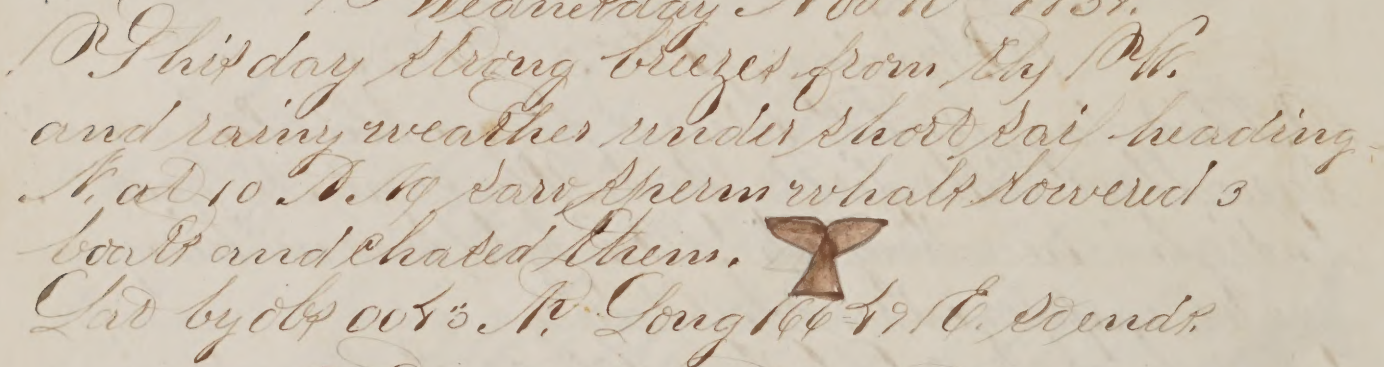 Wednesday Nov
This day strong breezes from the W.
and rainy weather under short sail heading
N. at 10 A M saw sperm whales lowered 3
boats and chased them.
Lat by obs 00 43 N. Long 166 49 E. so ends.